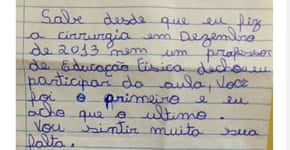 Sabe desde que eu fiz
a cirrurgia em Dezembro
de 2013 nem um professor
de Educação Física deichou eu
participar da aula, Você
foi o primeiro e eu
acho que o ultimo.
Vou sintir muita sua
falta.